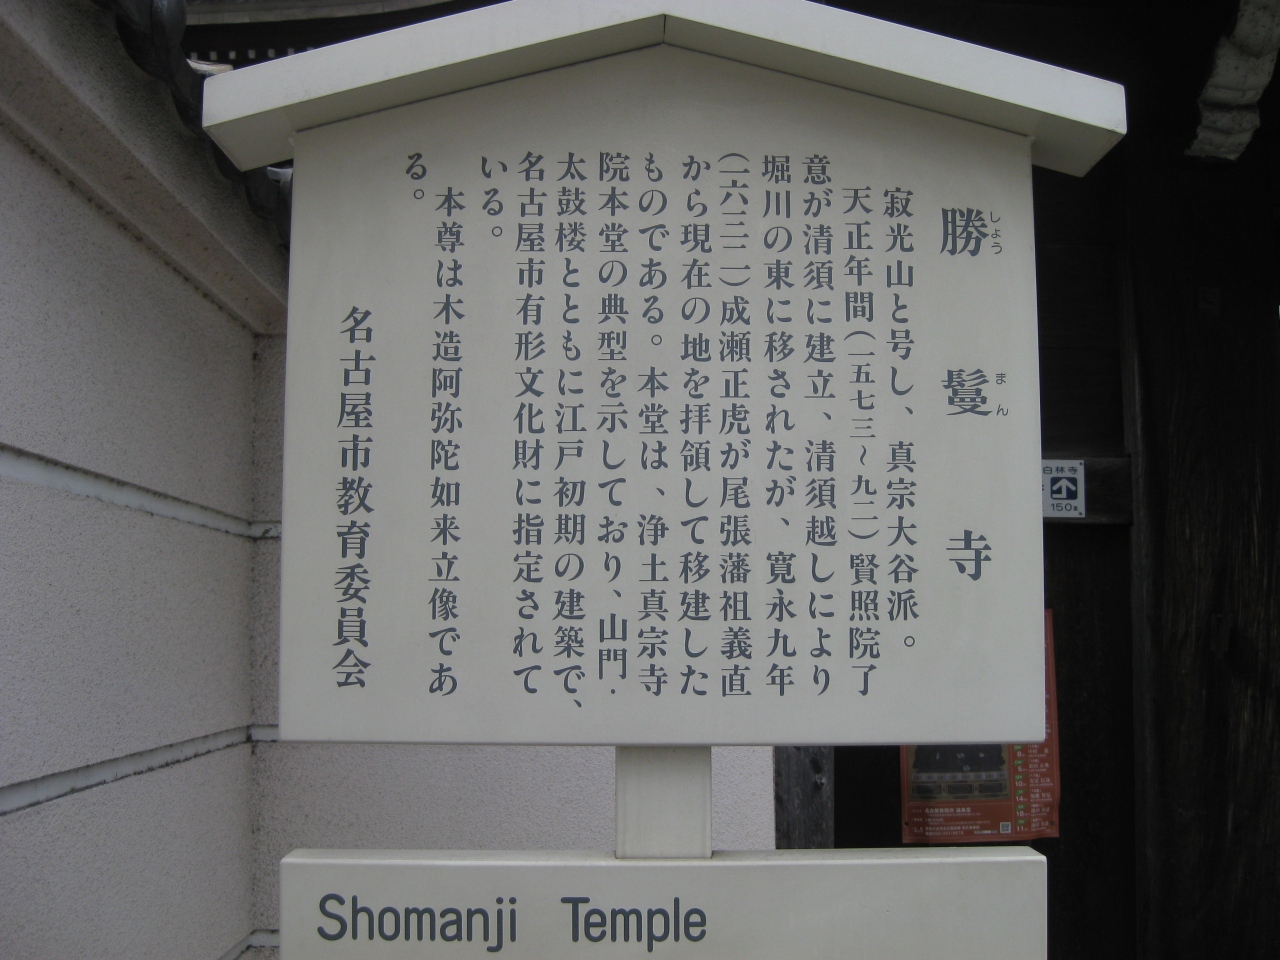 勝鬘寺
しょうまん
寂光山と号し、真宗大谷派。
天正年間(一五七三~九二)賢照院了
意が清須に建立、清須越しにより
堀川の東に移されたが、寛永九年
(一六三二)成瀬正虎が尾張藩祖義直
から現在の地を拝領して移建した
ものである。本堂は、浄土真宗寺
院本堂の典型を示しており、山門・
太鼓楼とともに江戸初期の建築で、
名古屋市有形文化財に指定されて
いる。
本尊は木造阿弥陀如来立像であ
る。
名古屋市教育委員会
Shomanji Temple
白林寺
150m